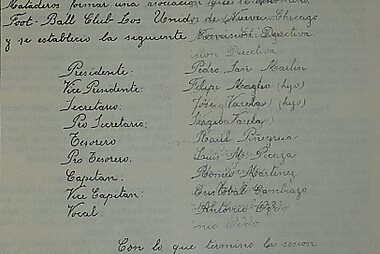 Mataderos formar una asociación que se denominará
Foot-Ball Club Los Unidos de Nueva Chicago
y se estableció la siguiente Comisión Directiva.
Presidente: Pedro San Martin
Vice Presidente: Felipe Maglio (hijo)
Secretario: José Varela (hijo)
Pro Secretario: Varela
Tesorero Raúl
Pro Tesorero: Luis M.
Capitan: Romeo Martinez
Vice Capitan: Cristobal Cambiazo
Vocal: Antonio Oddo
Con lo que termino la sesion